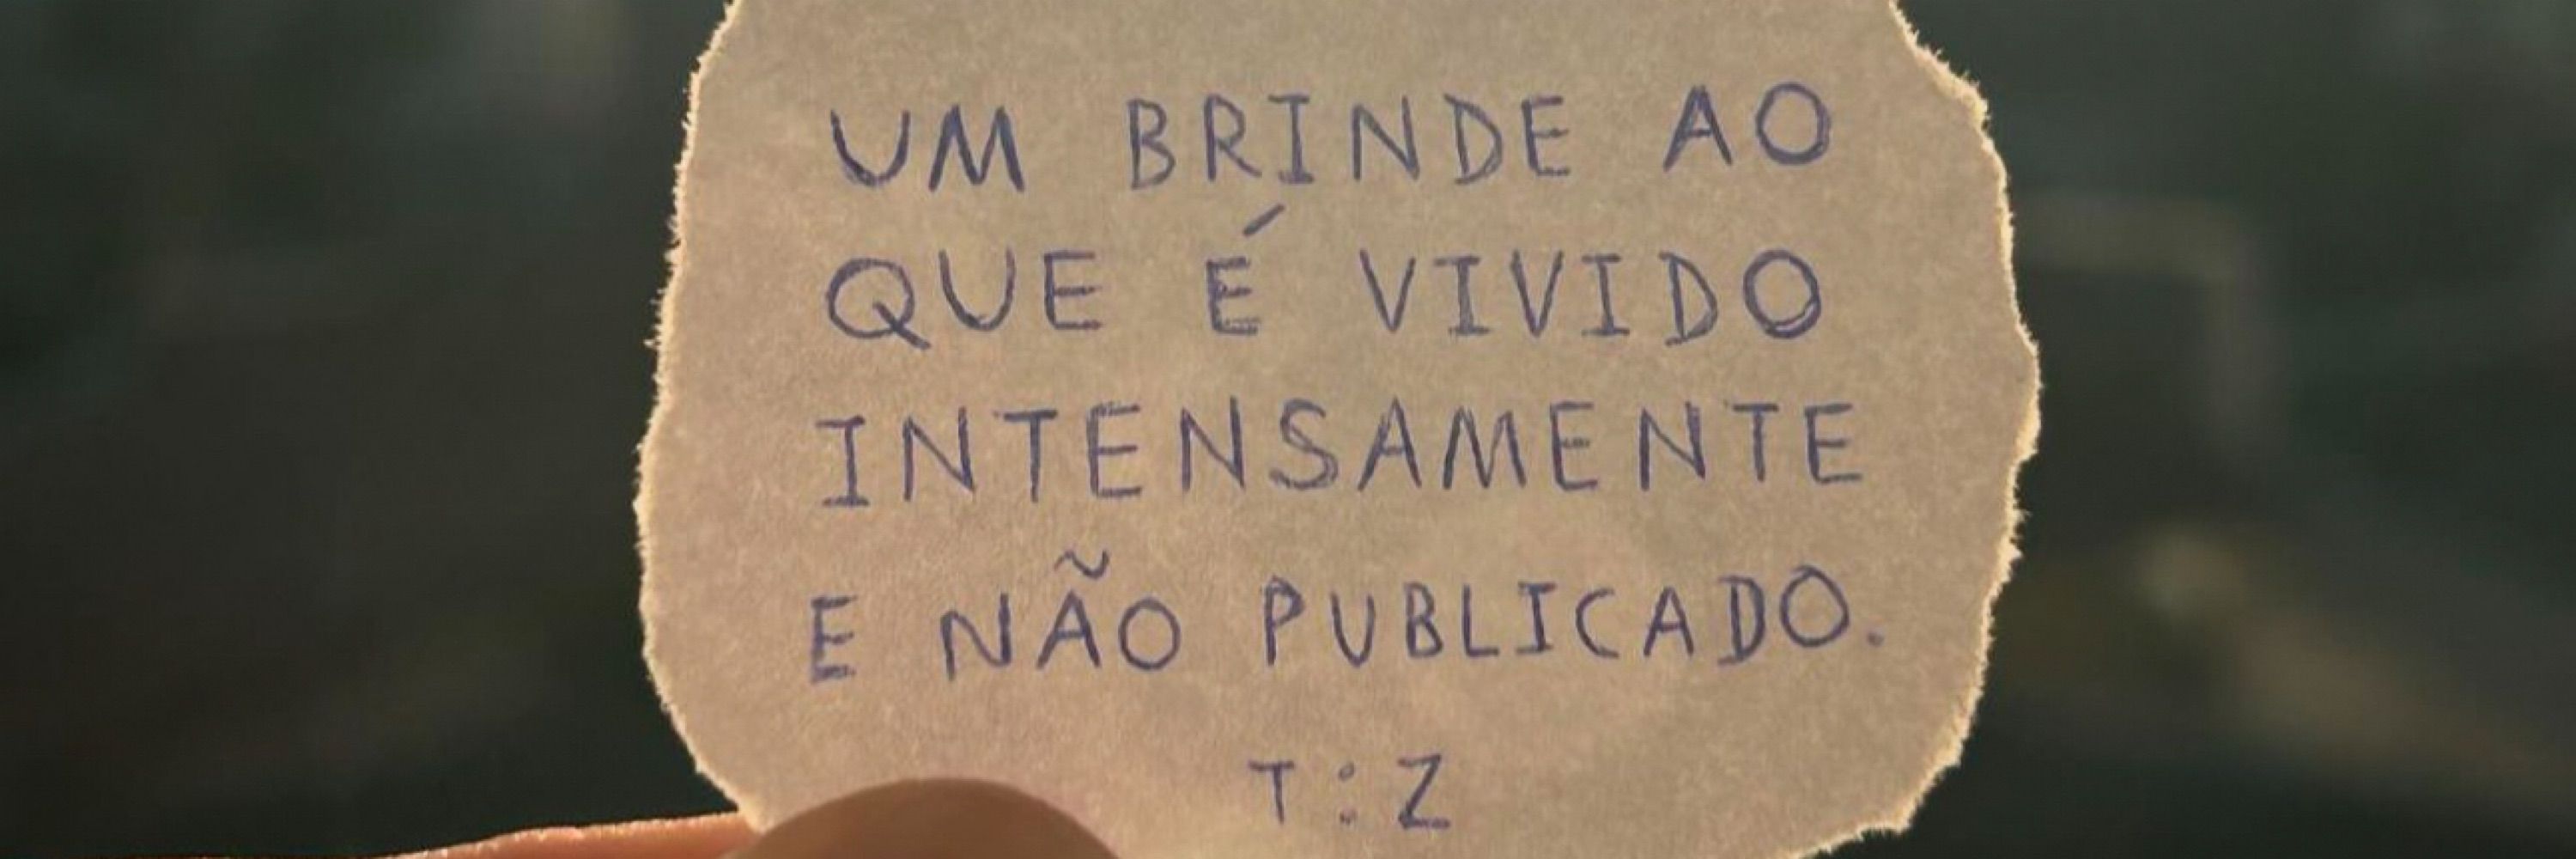 UM BRINDE AO
QUE É VIVIDO
INTENSAMENTE
E NÃO PUBLICADO.
T:Z